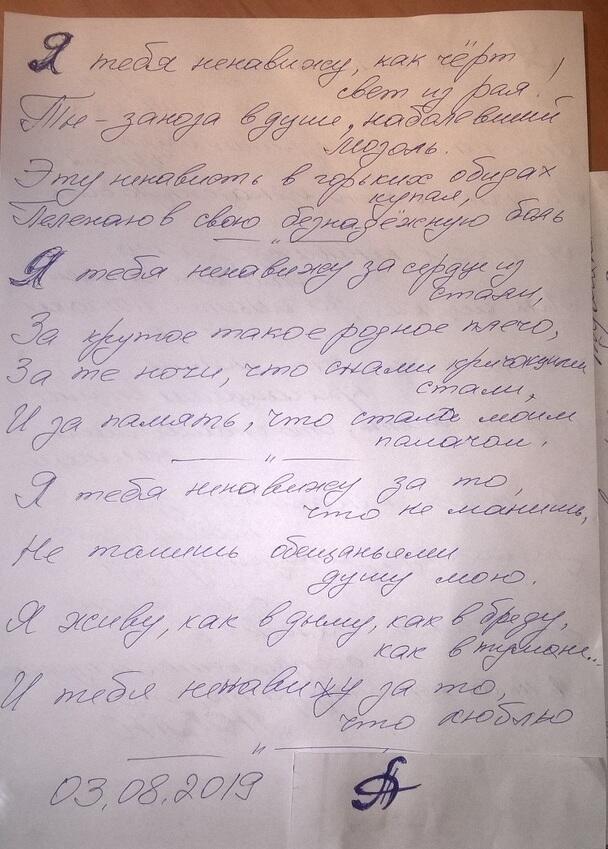 Я тебя ненавижу, как чёрт
свет из рая!
Ты - заноза в душе, наболевший
мозоль.
Эту ненависть в горьких обидах
купая,
Пеленаю в свою безнадёжную боль
— " —
Я тебя ненавижу за сердце из
стали,
За крутое такое родное плечо,
За те ночи, что снами кричащими
стали,
И за память, что стала моим
палачом.
— " —
Я тебя ненавижу за то,
что не манишь,
Не томишь обещаньями
душу мою.
Я живу, как в дыму, как в бреду,
как в тумане...
И тебя ненавижу за то,
что люблю
— " —
03.08.2019